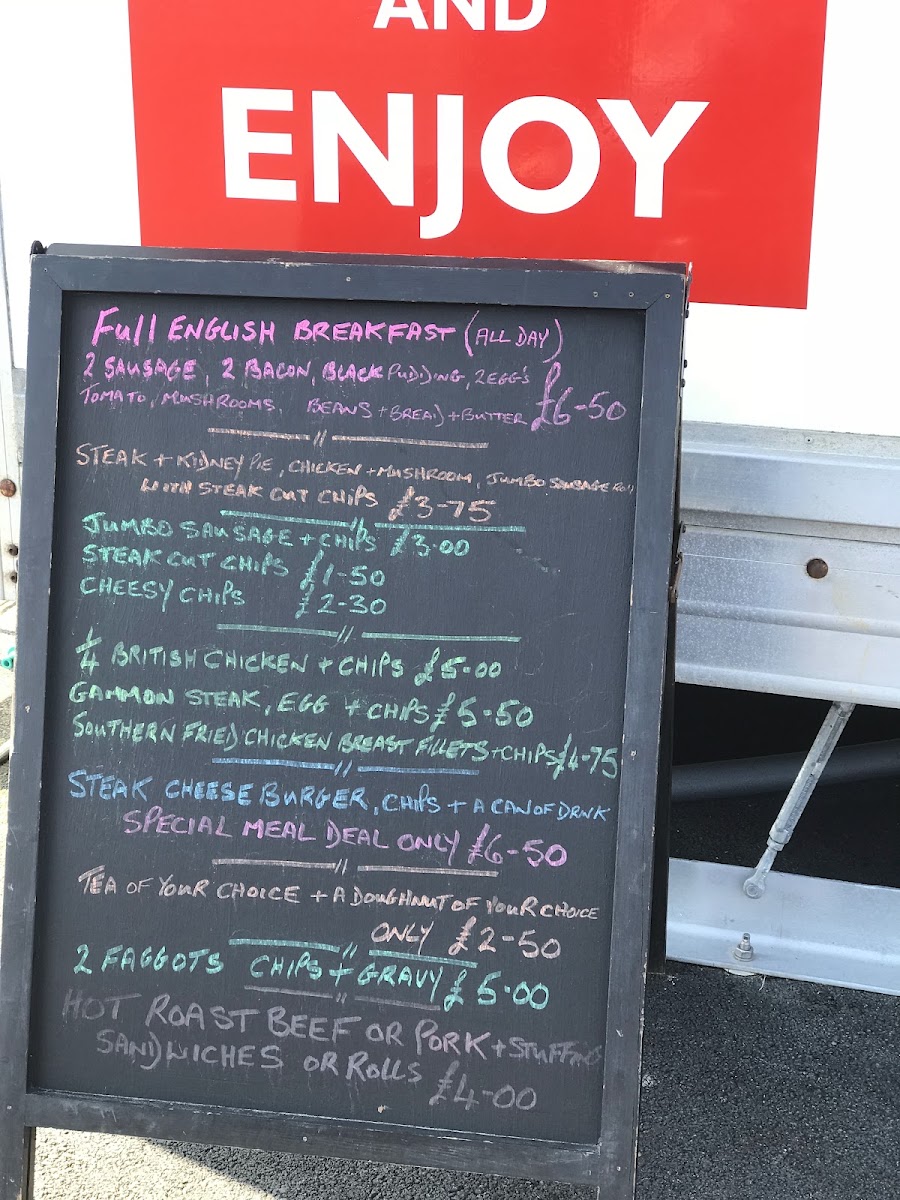 AND
ENJOY
Full ENGLISH BREAKFAST (ALL DAY)
2 SAUSAGE, 2 BACON, BLACK PUDDING, 2 EGG'S
TOMATO, MUSHROOMS, BEANS + BREAD + BUTTER £6-50
STEAK + KIDNEY PIE, CHICKEN + MUSHROOM, JUMBO SAUSAGE ROLL
WITH STEAK CUT CHIPS £3-75
JUMBO SAUSAGE + CHIPS £3-00
STEAK CUT CHIPS £1-50
CHEESY CHIPS £2-30
1/4 BRITISH CHICKEN + CHIPS £5-00
GAMMON STEAK, EGG + CHIPS £5-50
SOUTHERN FRIED CHICKEN BREAST FILLETS + CHIPS £4-75
STEAK CHEESE BURGER, CHIPS + A CAN OF DRINK
SPECIAL MEAL DEAL ONLY £6-50
TEA OF YOUR CHOICE + A DOUGHNUT OF YOUR CHOICE
ONLY £2-50
2 FAGGOTS CHIPS + GRAVY £5-00
HOT ROAST BEEF OR PORK + STUFFING
SANDWICHES OR ROLLS £4-00